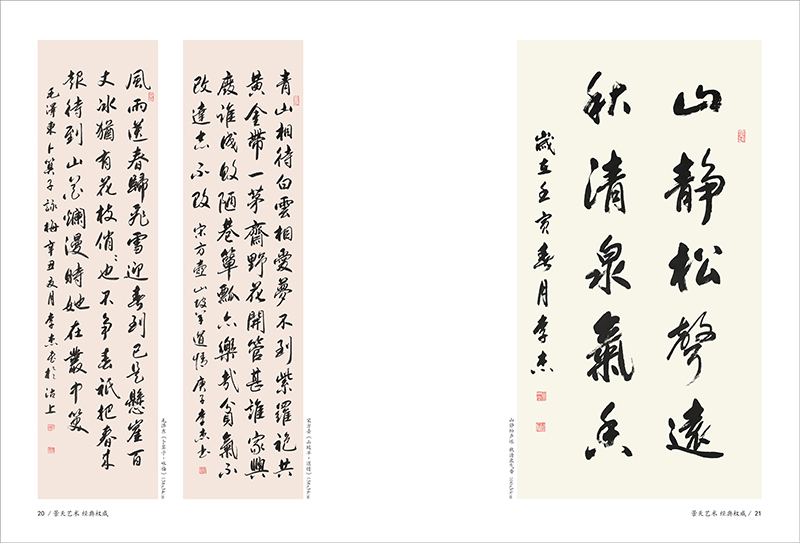 風雨送春歸飛雪迎春到已是懸崖百
丈冰猶有花枝俏〻也不争春祇把春来
報待到山花爛漫時她在叢中笑
毛澤東卜算子詠梅辛丑夏月李杰書於沽上
毛泽东《卜算子·咏梅》
青山相待白雲相愛夢不到紫羅袍共
黄金帶一茅齋野花開管甚誰家興
廢誰成敗陋巷簞瓢亦樂哉貧氣不
改達志不改 宋方壺山坡羊道情庚子李杰書
宋方壶《山坡羊·道情》
20 / 景天艺术 经典权威
山静松聲遠
秋清泉氣香
歲在壬寅春月李杰
山静松声远 秋清泉气香
景天艺术 经典权威 / 21